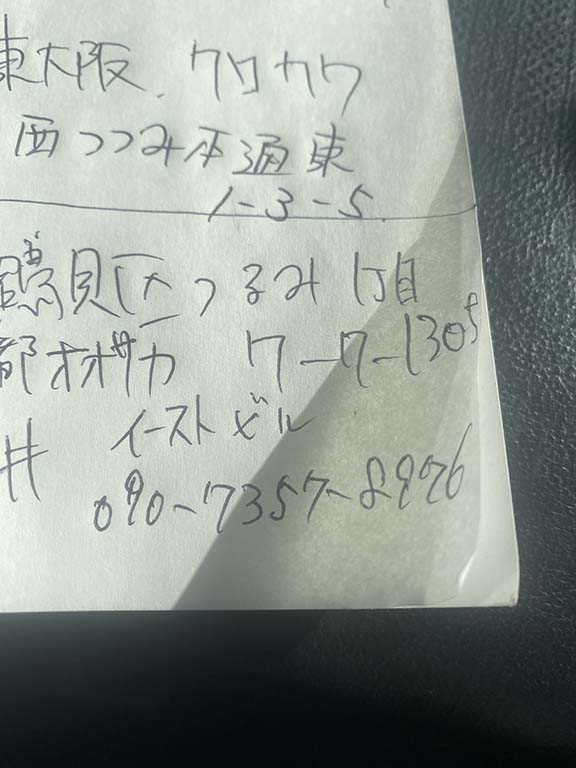 東大阪. クロカワ
西つつみ本通東
1-3-5.
鶴見区つるみ1丁目
都オオサカ 7-7-1305
井 イーストビル
090-7357-8976